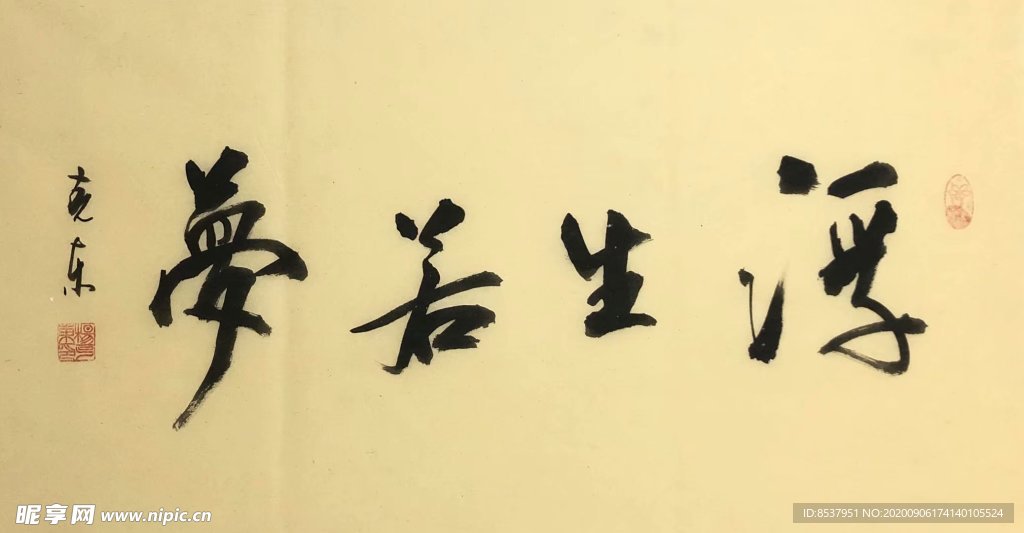 浮生若夢
尭东
昵享网 www.nipic.cn
ID:8537951 NO:20200906174140105524